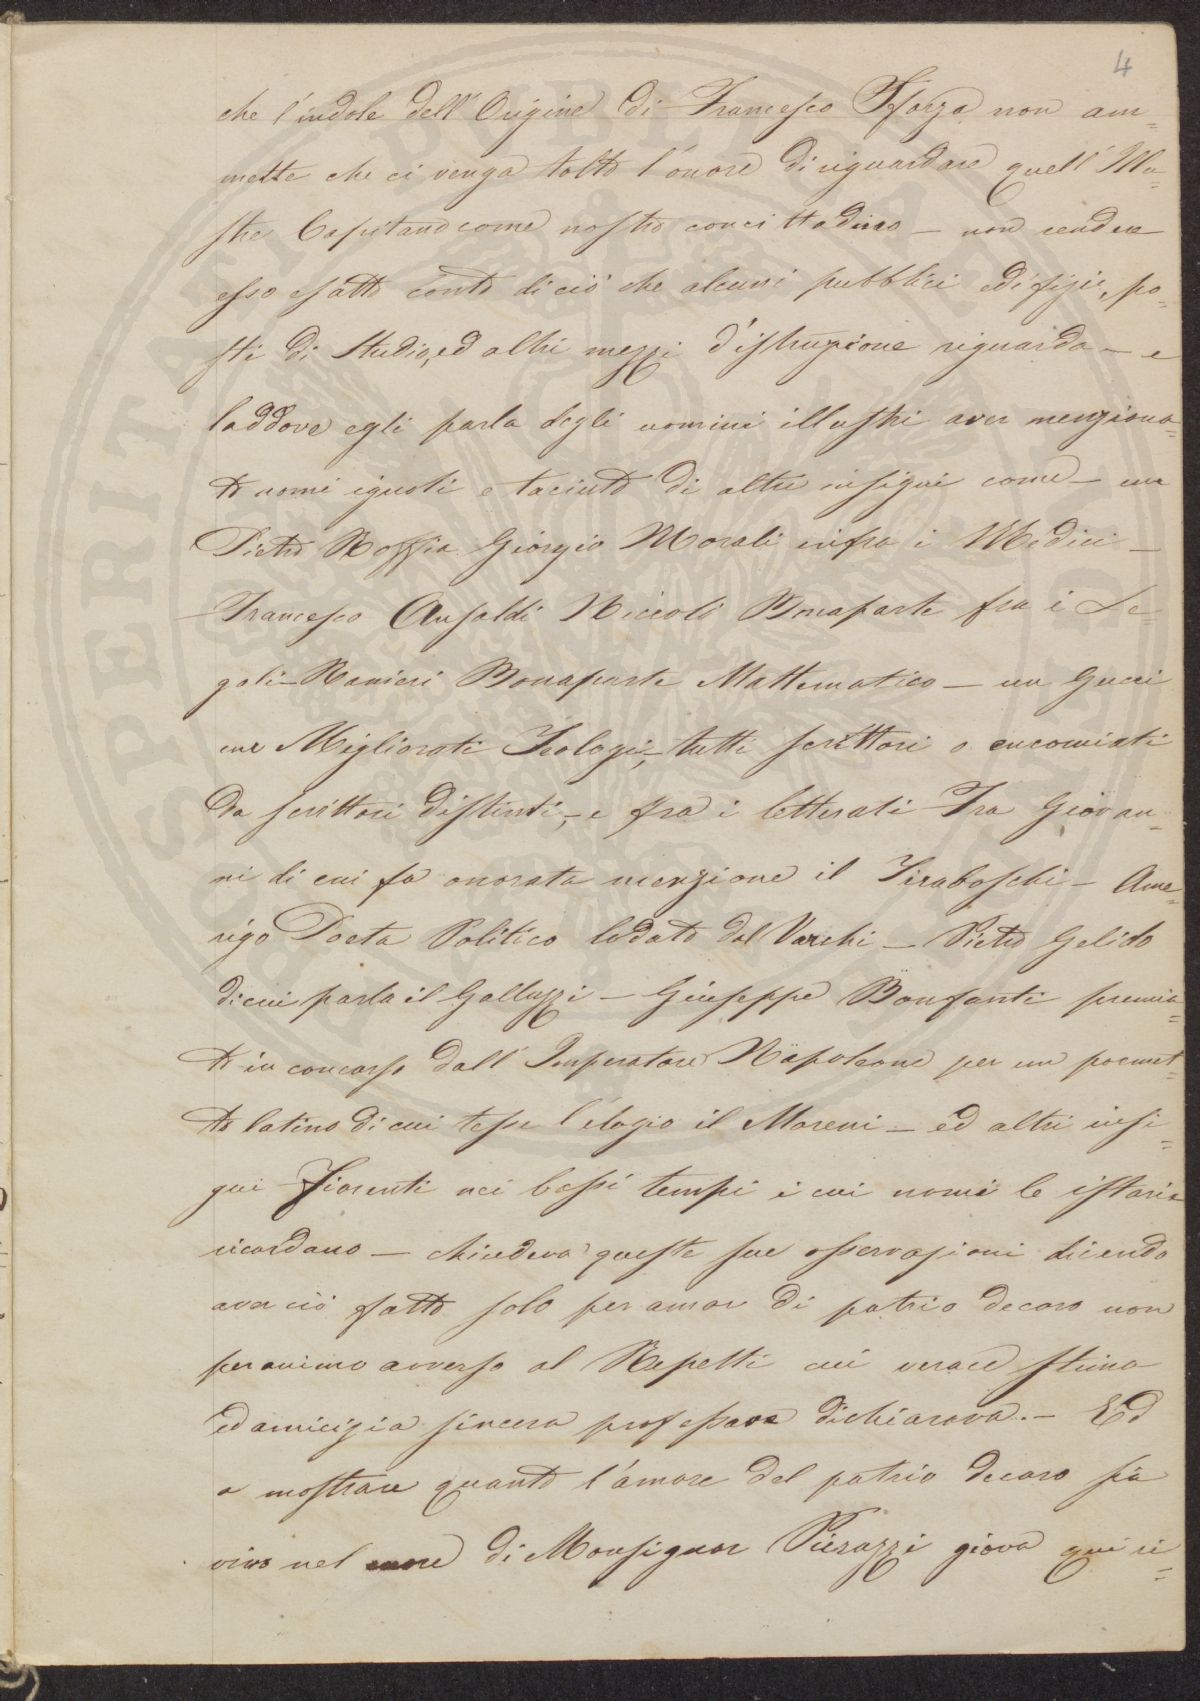 4
che l'indole dell'Origine di Francesco Sforza non am=
mette che ci venga tolto l'onore di riguardare quell'Illu=
stre Capitano come nostro concittadino – non rendere
esso esatto conto di ciò che alcuni pubblici edifizii, po=
sti di Studio, ed altri mezzi d'istruzione riguarda – e
laddove egli parla degli uomini illustri aver menziona=
to nomi ignoti e taciuto di altri insigni come – un
Pietro Roffia Giorgio Morali infra i Medici –
Francesco Ansaldi Niccolò Bonaparte fra i Le=
gali – Ranieri Bonaparte Mattematico – un Gucci
un Migliorati Teologi, – tutti scrittori o encomiati
da scrittori distinti, – e fra i letterati Fra Giovan=
ni di cui fa onorata menzione il Tiraboschi – Ame=
rigo Poeta Politico lodato dal Varchi – Pietro Gelido
di cui parla il Galluzzi – Giuseppe Bonfanti premia=
to in concorso dall'Imperatore Napoleone per un poemet=
to latino di cui tesse l'elogio il Moreni – ed altri insi=
gni Fiorenti nei bassi tempi i cui nomi le istorie
ricordano – chiudeva queste sue osservazioni dicendo
aver ciò fatto solo per amor di patrio decoro non
per animo avverso al Repetti cui verace stima
ed amicizia sincera professare dichiarava. – Ed
a mostrare quanto l'amore del patrio decoro sia
vivo nel cuore di Monsignor Pierazzi giova qui ri=